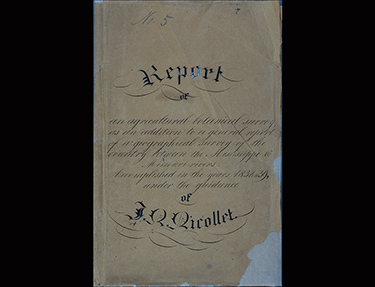 No 5
Report
of
an agricultural botanical survey
as an addition to a general report
of a geographical survey of the
country between the Mississippi &
Missouri rivers
accomplished in the years 1838 & 39,
under the guidance
of
J. N. Nicollet.